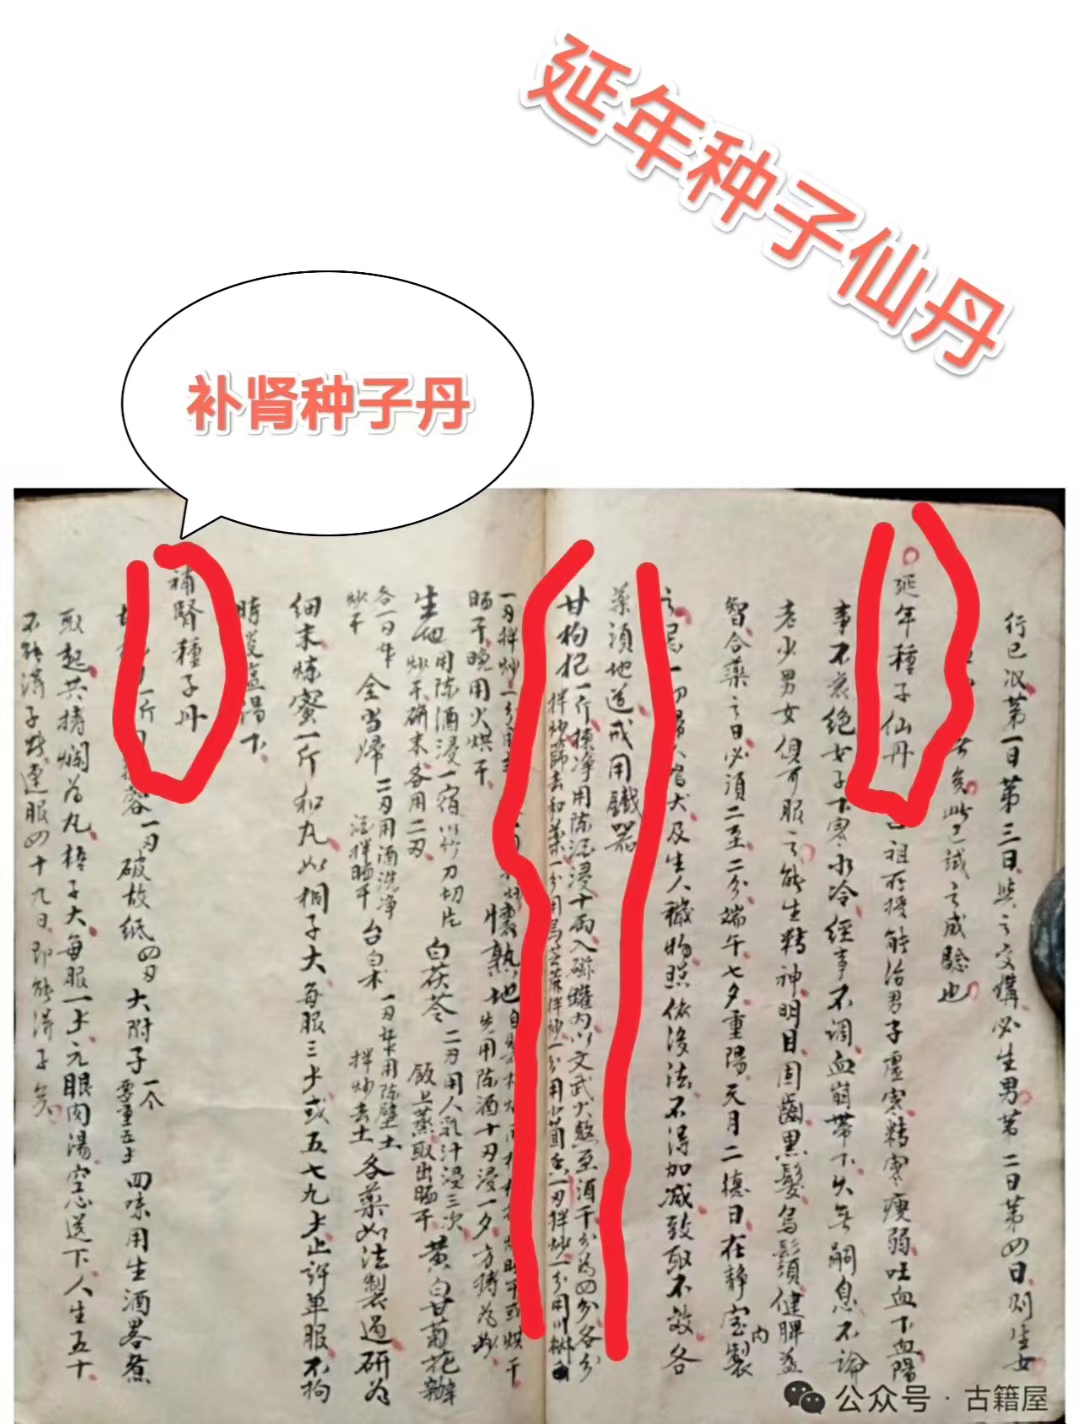 延年种子仙丹
补肾种子丹
行已汉第一日第三日與之交媾必生男若二日第四日则生女
矣此已試之成驗也
延年種子仙丹
吕祖所授能治男子虚寒精寒瘦弱吐血下血陽
事不衰絶女子下寒水冷經事不调血崩带下久無嗣息不論
老少男女俱可服之能生精神明目固齒黑髮烏鬚健脾益
智合藥之日必須二至二分端午七夕重陽天月二德日在静室内製
之忌一切婦人鸡犬及生人穢物照依後法不得加减致取不效各
藥須地道戒用鐵器
甘枸杞一斤揀净用陈酒浸十两入磁罐内以文武火熬至酒干分為四分各分
拌炒篩去和藥一分用烏芝蔴拌炒一分用小茴香一刄拌炒一分用川椒
一刄拌炒一分用
懷熟地
先用陈酒十刄浸一夕方搗為
晒干晚用火烘干
生地用陈酒浸一宿以竹刀切片
炒干研末各用二刄
白茯苓二刄用人乳汁浸三次
飯上蒸取出晒干
黄白甘菊花瓣
各一刄
炒干
全当歸二刄用酒洗净
酒拌晒干
台白术
拌炒去土
各藥如法製過研为
细末炼蜜一斤和丸如桐子大每服三卜或五七九卜止許单服不拘
時淡盐湯下
補腎種子丹
一斤
蓉一刄破故纸四刄大附子一个
要重五卜
四味用生酒畧煮
取起共搗爛为丸梧子大每服一卜元眼肉湯空心送下人生五十
連服四十九日即能得子矣
公众号·古籍屋